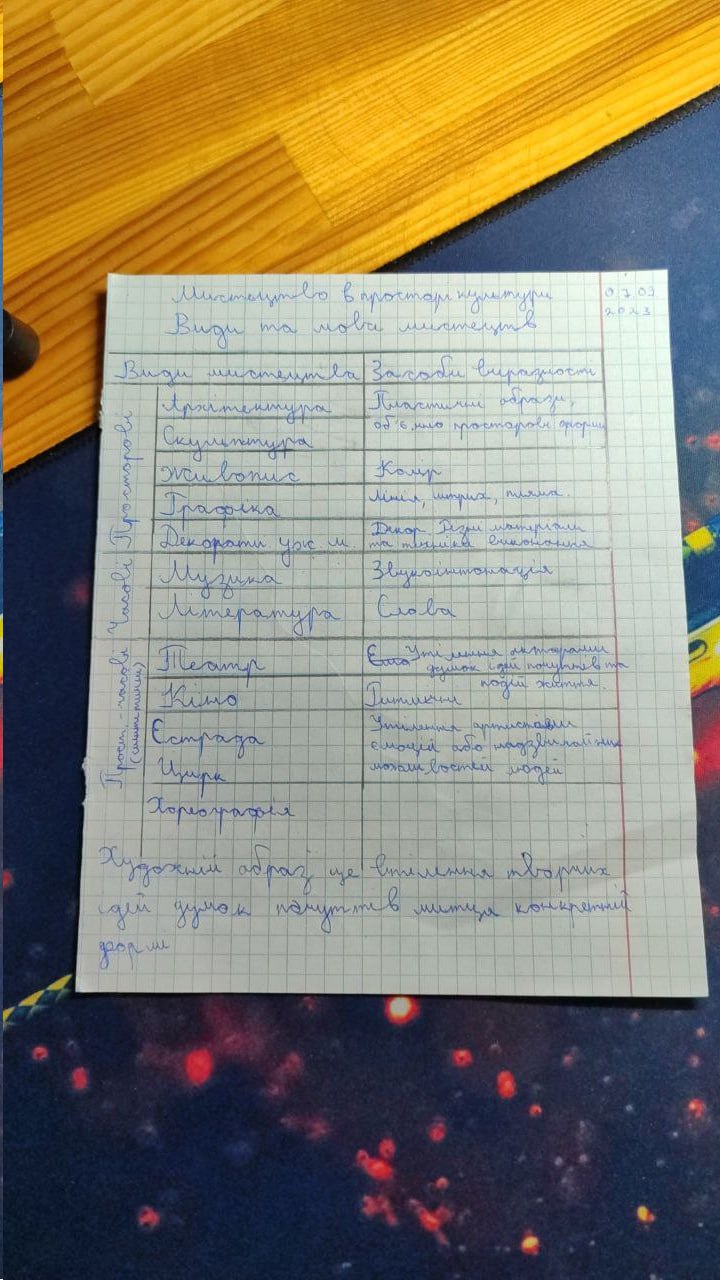 Мистецтво в простор культури
07.09
2023
Види та мова мистецтв
Види мистецтва Засоби виразності
Просторові
Архітектура Пластичні образи,
Скульптура об'ємно просторові форми
Живопис Колір
Графіка Лінія, штрих, пляма.
Декорати. уж. м. Декор Різні матеріали
та техніки виконання
Часові
Музика Звукоінтонація
Література Слова
Прост. - часові
(синтетичні)
Театр Утілення акторами
думок ідей почуттєв та
подій життя.
Кіно
Єстрада Утілення артистами
ємоцій або надзвичайних
Цирк можливостей людей
Хореографія
Художній образ це втілення творчих
ідей думок почуттєв митця конкретній
формі